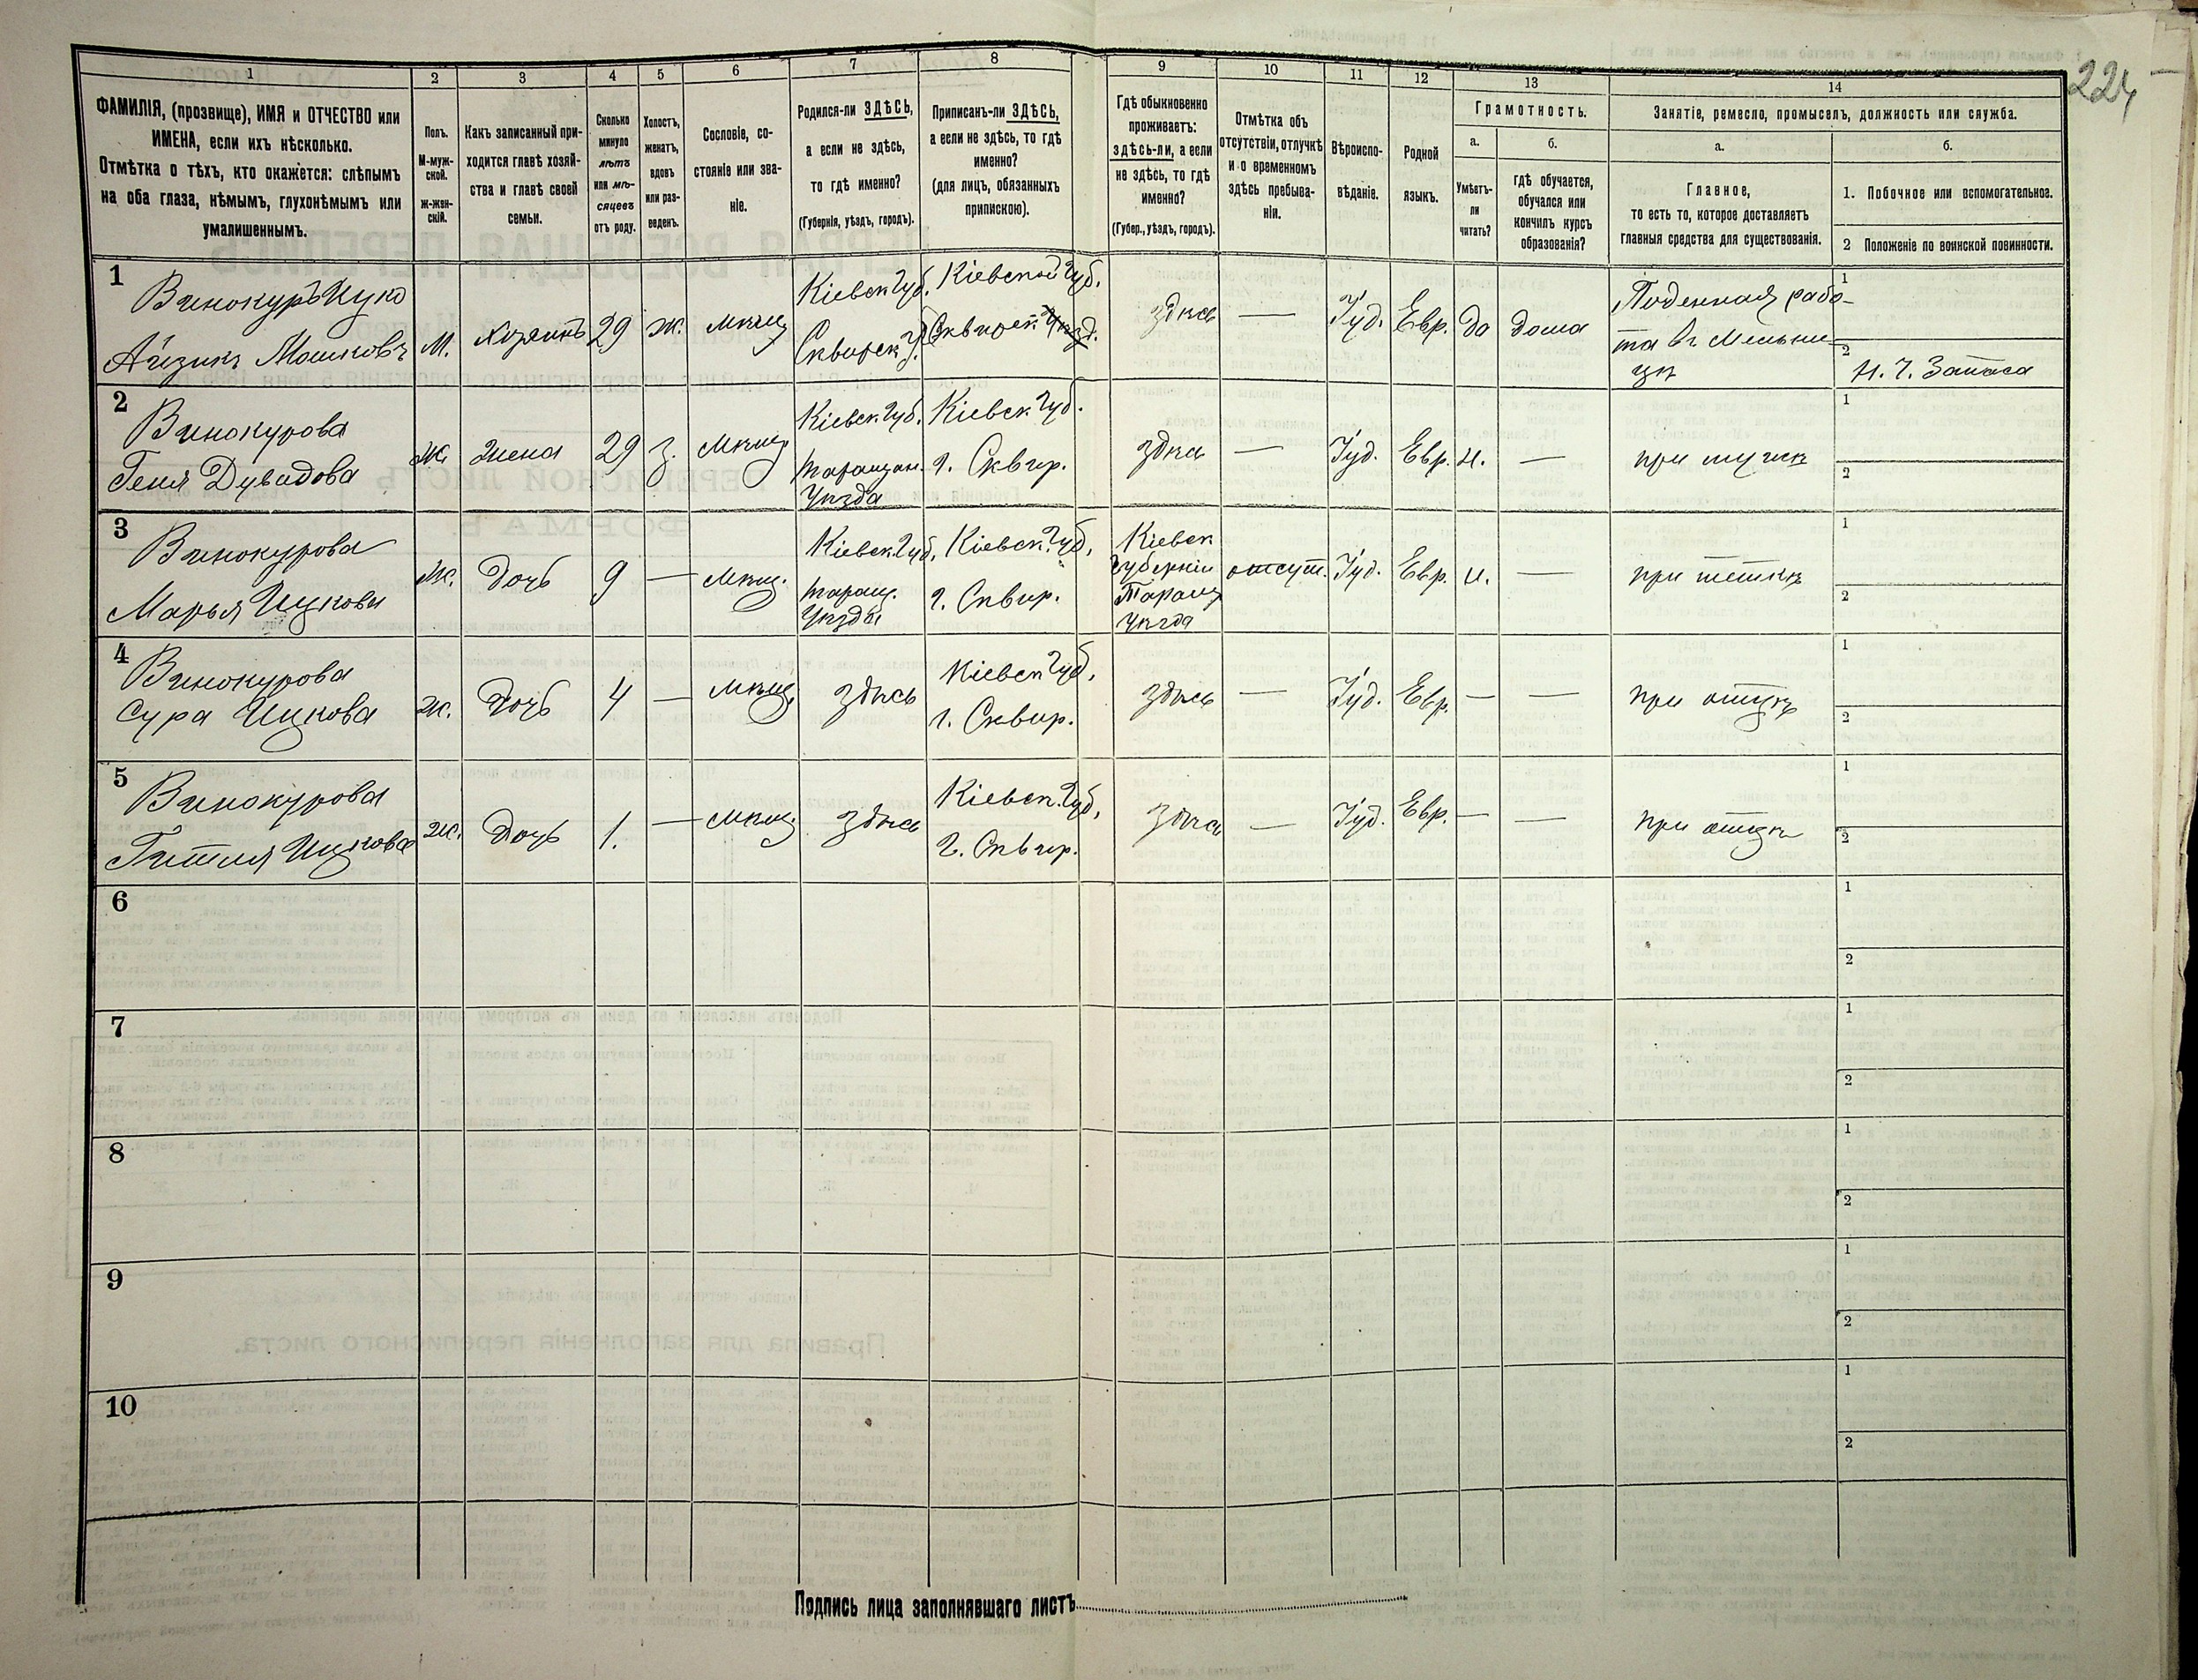 224
1 2 3 4 5 6 7 8 9 10 11 12 13 14
ФАМИЛІЯ, (прозвище), ИМЯ и ОТЧЕСТВО или
ИМЕНА, если ихъ нѣсколько.
Отмѣтка о тѣхъ, кто окажется: слѣпымъ
на оба глаза, нѣмымъ, глухонѣмымъ или
умалишеннымъ.
Полъ.
М-муж-
ской.
ж-жен-
скій.
Какъ записанный при-
ходится главѣ хозяй-
ства и главѣ своей
семьи.
Сколько
минуло
лѣтъ
или мѣ-
сяцевъ
отъ роду.
Холостъ,
женатъ,
вдовъ
или раз-
веденъ.
Сословіе, со-
стояніе или зва-
ніе.
Родился-ли ЗДѢСЬ,
а если не здѣсь,
то гдѣ именно?
(Губернія, уѣздъ, городъ).
Приписанъ-ли ЗДѢСЬ,
а если не здѣсь, то гдѣ
именно?
(для лицъ, обязанныхъ
припискою).
Гдѣ обыкновенно
проживаетъ:
здѣсь-ли, а если
не здѣсь, то гдѣ
именно?
(Губер., уѣздъ, городъ).
Отмѣтка объ
отсутствіи, отлучкѣ
и о временномъ
здѣсь пребыва-
ніи.
Вѣроиспо-
вѣданіе.
Родной
языкъ.
Грамотность.
а.
Умѣетъ-
ли
читать?
б.
гдѣ обучается,
обучался или
кончилъ курсъ
образованія?
Занятіе, ремесло, промыселъ, должность или служба.
а.
Главное,
то есть то, которое доставляетъ
главныя средства для существованія.
б.
1. Побочное или вспомогательное.
2 Положеніе по воинской повинности.
1
Винокуръ Ицко
Айзикъ Мошковъ
М.
Хозяинъ
29
Ж.
Мѣщ
Кіевск. Губ.
Сквирск. У.
Кіевской Губ.
Сквирск. Уѣзд.
здѣсь
—
Іуд.
Евр.
да
дома
Поденная рабо-
та въ Мельни-
цѣ
1
2
Н. Ч. Запаса
2
Винокурова
Геня Дувидова
Ж.
Жена
29
З.
Мѣщ.
Кіевск. Губ.
Таращан.
Уѣзда
Кіевск. Губ.
г. Сквир.
здѣсь
—
Іуд.
Евр.
н.
—
при мужѣ
1
2
3
Винокурова
Марья Ицкова
Ж.
Дочь
9
—
Мѣщ.
Кіевск. Губ.
Таращ.
Уѣзда
Кіевск. Губ.
г. Сквир.
Кіевск
Губерніи
Таращ
Уѣзда
отсут.
Іуд.
Евр.
н.
—
при теткѣ
1
2
4
Винокурова
Сура Ицкова
Ж.
Дочь
4
—
Мѣщ.
здѣсь
Кіевск Губ.
г. Сквир.
здѣсь
—
Іуд.
Евр.
—
—
при отцѣ
1
2
5
Винокурова
Гитля Ицкова
Ж.
Дочь
1.
—
Мѣщ.
здѣсь
Кіевск. Губ.
г. Сквир.
здѣсь
—
Іуд.
Евр.
—
—
при отцѣ
1
2
6
1
2
7
1
2
8
1
2
9
1
2
10
1
2
Подпись лица заполнявшаго листъ